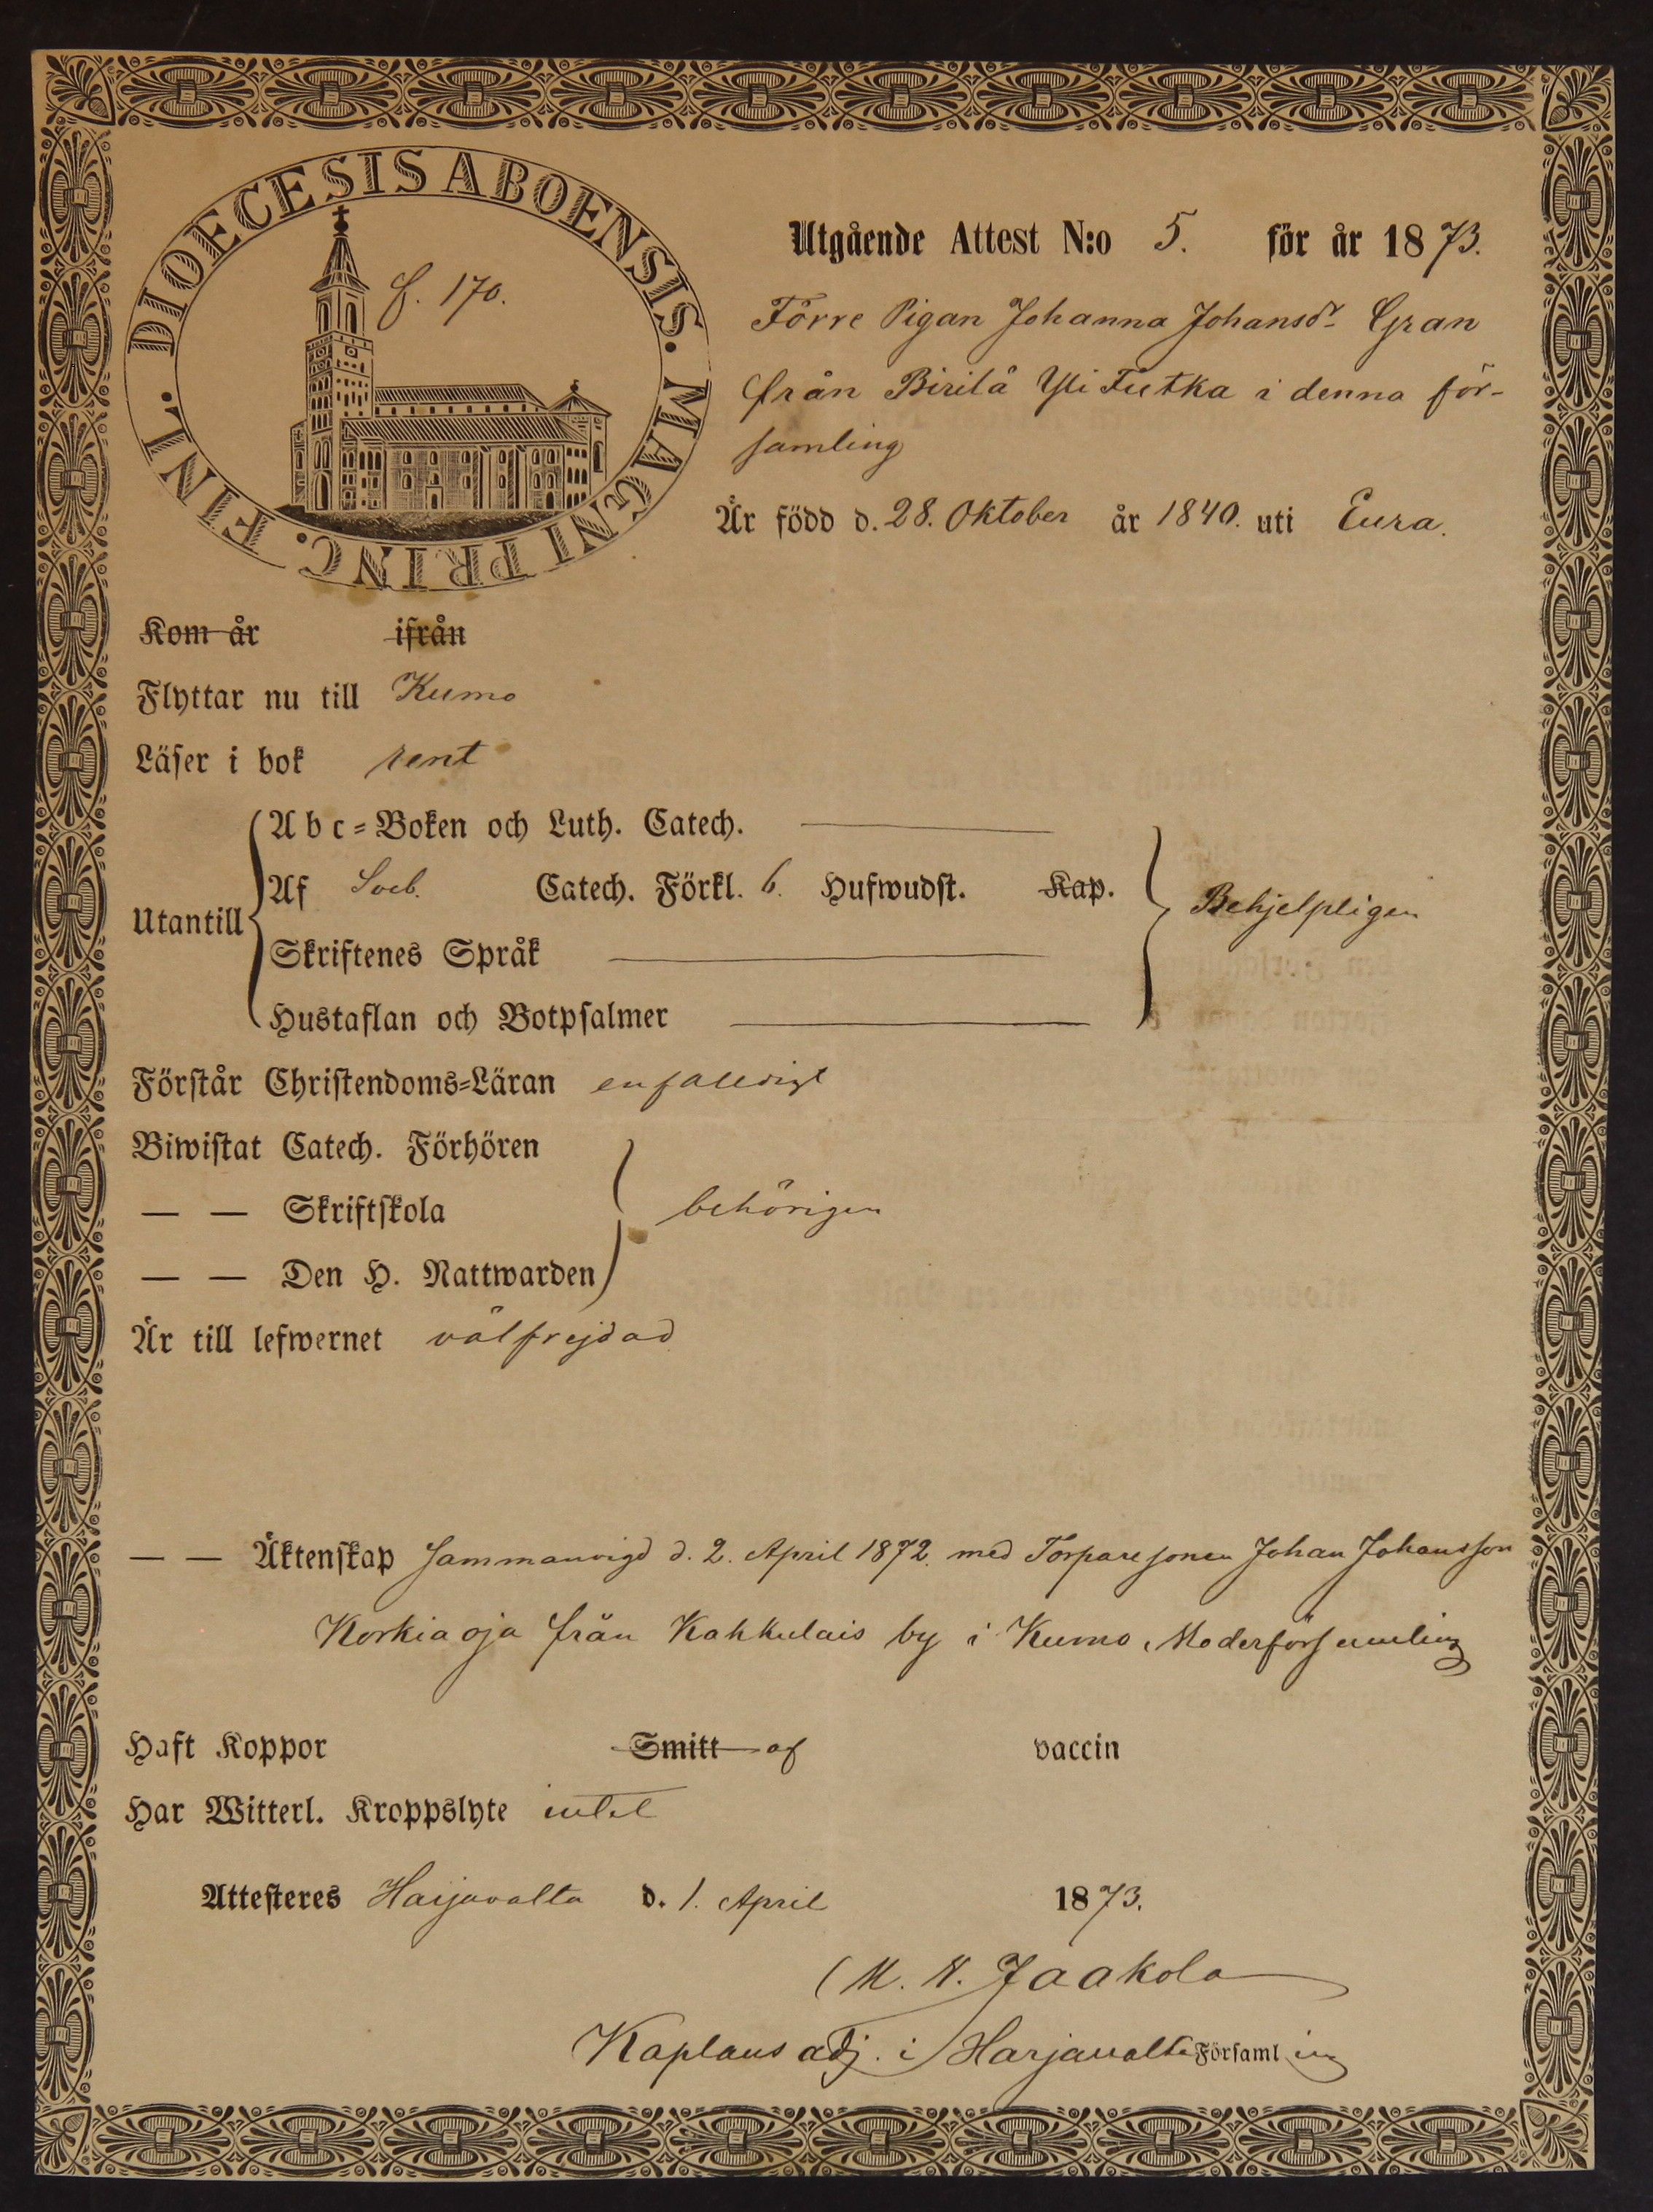 DIOECESIS ABOENSIS. MAGNI PRINC. FINL.
f. 170.
Utgående Attest N:o 5. för år 1873.
Förre Pigan Johanna Johansdr Gran
från Birilä Yli Tutka i denna för-
samling
Är född d. 28. Oktober år 1840. uti Eura.
Kom år ifrån
Flyttar nu till Kumo
Läser i bok rent
Utantill
Abc=Boken och Luth. Catech.
Af Sveb. Catech. Förkl. 6. Hufwudst. Kap.
Behjelpligen
Skriftenes Språk
Hustaflan och Botpsalmer
Förstår Christendoms=Läran enfalldigt
Biwistat Catech. Förhören
— — Skriftskola behörigen
— — Den H. Nattwarden
Är till lefwernet välfrejdad
— — Äktenskap sammanvigd d. 2. April 1872. med Torparesonen Johan Johansson
Korkiaoja från Kakkulais by i Kumo Moderförsamling
Haft Koppor Smitt af vaccin
Har Witterl. Kroppslyte intet
Attesteres Harjavalta d. 1. April 1873.
Jaakola
Kaplans adj. i Harjavalta Församling